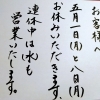 お客様へ
五月一日(月)と八日(月)
お休みいただきます。
連休中は(水)も
営業いたします。